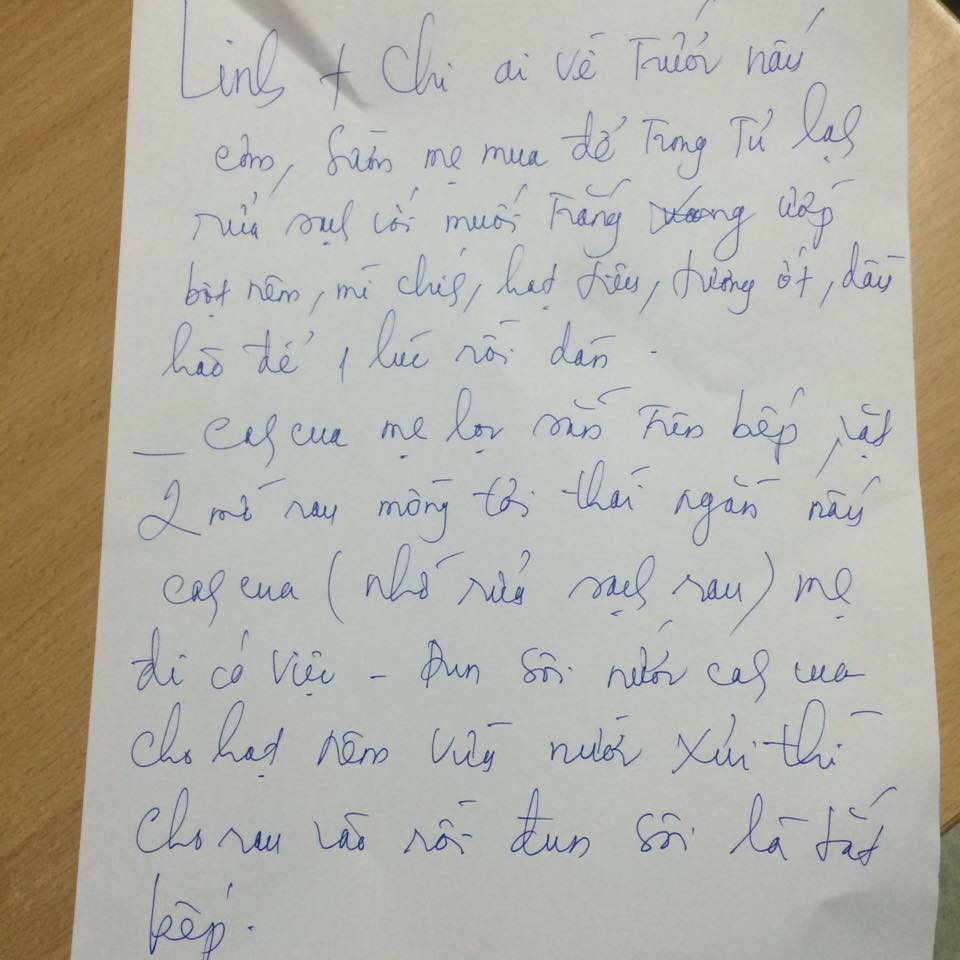 Linh + Chi ai về trước nấu
cơm, sườn mẹ mua để trong tủ lạnh
rửa sạch với muối trắng ướp
bột nêm, mì chính, hạt tiêu, tương ớt, dầu
hào để 1 lúc rồi rán.
_ Canh cua mẹ lọc sẵn trên bếp, nhặt
2 mớ rau mồng tơi thái ngắn nấu
canh cua (nhớ rửa sạch rau) mẹ
đi có việc - Đun sôi nước canh cua
cho hạt nêm vừa nước xúi thì
cho rau vào rồi đun sôi là tắt
bếp.